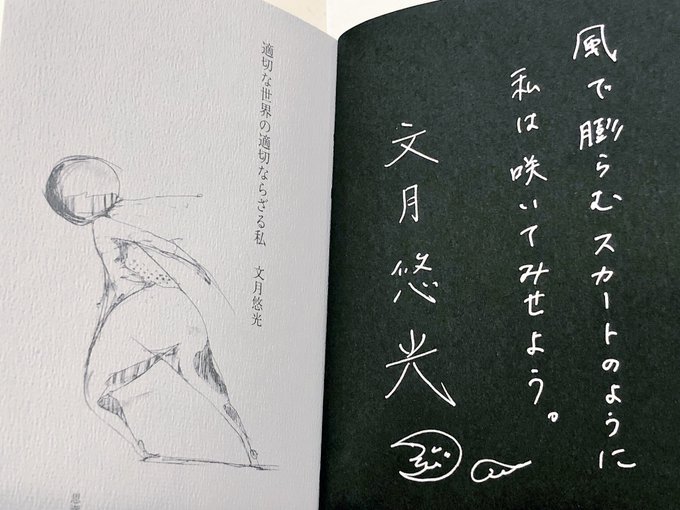 風で膨らむスカートのように
私は咲いてみせよう。
文月悠光
適切な世界の適切ならざる私　文月悠光
思